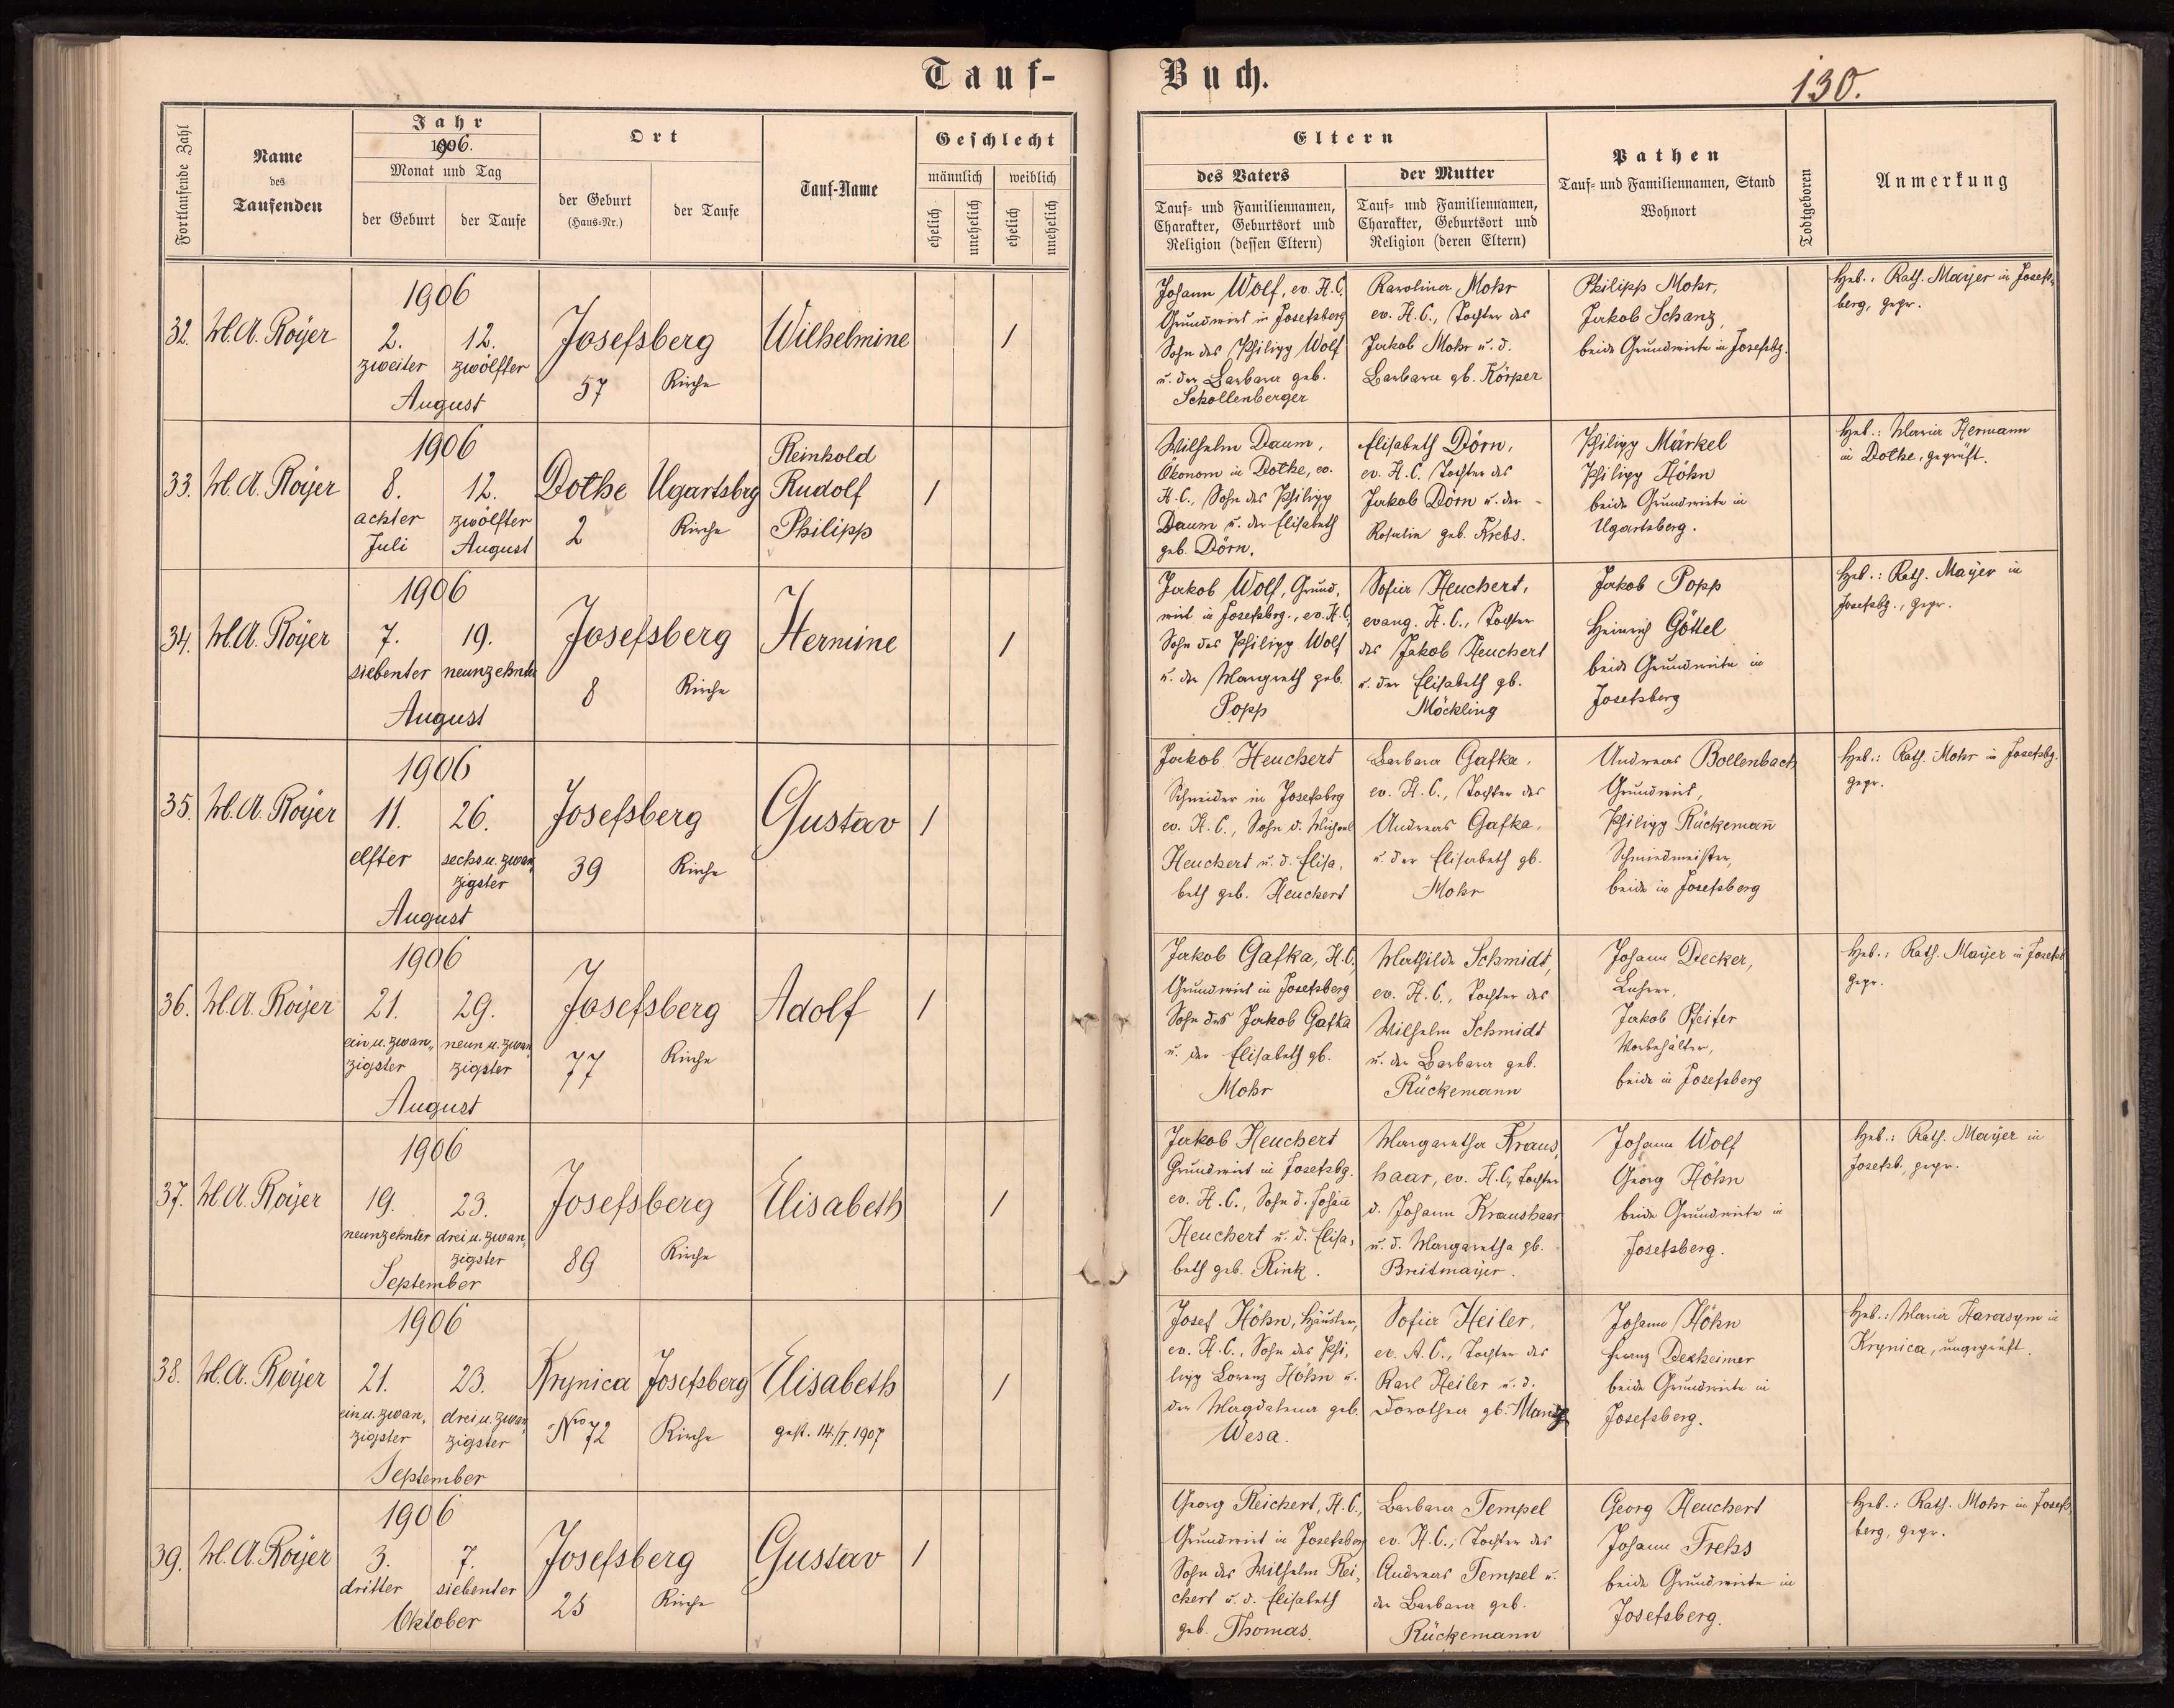 Tauf-
Buch.
130.
Fortlaufende Zahl
Name
des
Taufenden
Jahr
1906.
Monat und Tag
der Geburt
der Taufe
Ort
der Geburt
(Haus-Nr.)
der Taufe
Tauf-Name
Geschlecht
männlich
weiblich
ehelich
unehelich
ehelich
unehelich
Eltern
des Vaters
Tauf- und Familiennamen,
Charakter, Geburtsort und
Religion (dessen Eltern)
der Mutter
Tauf- und Familiennamen,
Charakter, Geburtsort und
Religion (deren Eltern)
Pathen
Tauf- und Familiennamen, Stand
Wohnort
Todtgeboren
Anmerkung
32.
Royer
1906
2.
zweiter
12.
zwölfter
August
Josefsberg
57
Kirche
Wilhelmine
1
Johann Wolf, ev. H. C.
Grundwirt in Josefsberg
Sohn des Philipp Wolf
u. der Barbara geb.
Schollenberger
Karolina Mohr
ev. H. C., Tochter des
Jakob Mohr u. d.
Barbara gb. Körper
Philipp Mohr,
Jakob Schanz,
beide Grundwirte in Josefsbg.
Heb.: Kath. Mayer in Josefs-
berg, gepr.
33.
Royer
1906
8.
achter
Juli
12.
zwölfter
August
Dothe
2
Ugartsbrg
Kirche
Reinhold
Rudolf
Philipp
1
Wilhelm Daum,
Ökonom in Dothe, ev.
H. C., Sohn des Philipp
Daum u. der Elisabeth
geb. Dörn.
Elisabeth Dörn,
ev. H. C. Tochter des
Jakob Dörn u. der
Rosalia geb. Krebs.
Philipp Märkel
Philipp Höhn
beide Grundwirte in
Ugartsberg.
Heb.: Maria Hermann
in Dothe, geprüft.
34.
Royer
1906
7.
siebenter
19.
neunzehnter
August
Josefsberg
8
Kirche
Hermine
1
Jakob Wolf, Grund-
wirt in Josefsbrg., ev. H. C.
Sohn des Philipp Wolf
u. der Margreth geb.
Popp
Sofia Heuchert,
evang. H. C., Tochter
des Jakob Heuchert
u. der Elisabeth gb.
Möckling
Jakob Popp
Heinrich Göttel
beide Grundwirte in
Josefsberg
Heb.: Kath. Mayer in
Josefsbg., gepr.
35.
Royer
1906
11.
elfter
26.
sechs u. zwan-
zigster
August
Josefsberg
39
Kirche
Gustav
1
Jakob Heuchert
Schneider in Josefsbrg
ev. H. C., Sohn d. Michael
Heuchert u. d. Elisa-
beth geb. Heuchert
Barbara Gafka,
ev. H. C., Tochter des
Andreas Gafka,
u. der Elisabeth gb.
Mohr
Andreas Bollenbach
Grundwirt,
Philipp Rückemañ
Schmiedmeister,
beide in Josefsberg
Heb.: Kath. Mohr in Josefsbg.
gepr.
36.
Royer
1906
21.
ein u. zwan-
zigster
29.
neun u. zwan
zigster
August
Josefsberg
77
Kirche
Adolf
1
Jakob Gafka, H. C.
Grundwirt in Josefsberg
Sohn des Jakob Gafka
u. der Elisabeth gb.
Mohr
Mathilde Schmidt,
ev. H. C., Tochter des
Wilhelm Schmidt
u. der Barbara geb.
Rückemann
Johann Decker,
Lehrer,
Jakob Pfeifer
Vorbehälter,
beide in Josefsberg
Heb.: Kath. Mayer in Josefsb
gepr.
37.
Royer
1906
19.
neunzehnter
23.
drei u. zwan-
zigster
September
Josefsberg
89
Kirche
Elisabeth
1
Jakob Heuchert
Grundwirt in Josefsbg.
ev. H. C., Sohn d. Johañ
Heuchert u. d. Elisa-
beth geb. Rink.
Margaretha Kraus-
haar, ev. H. C., Tochter
d. Johann Kraushaar
u. d. Margaretha gb.
Breitmayer.
Johann Wolf
Georg Höhn
beide Grundwirte in
Josefsberg.
Heb.: Kath. Mayer in
Josefsb., gepr.
38.
Royer
1906
21.
ein u. zwan-
zigster
23.
drei u. zwan
zigster
September
Krynica
Nro 72
Josefsberg
Kirche
Elisabeth
gest. 14./I. 1907
1
Josef Höhn, Häusler,
ev. H. C., Sohn des Phi-
lipp Lorenz Höhn u.
der Magdalena geb.
Wesa.
Sofia Heiler,
ev. A. C., Tochter des
Karl Heiler u. d.
Dorothea gb.
Johann Höhn
Franz Dexheimer
beide Grundwirte in
Josefsberg.
Heb.: Maria Harasym in
Krynica, ungeprüft.
39.
Royer
1906
3.
dritter
7.
siebenter
Oktober
Josefsberg
25
Kirche
Gustav
1
Georg Reichert, H. C.,
Grundwirt in Josefsberg
Sohn des Wilhelm Rei-
chert u. d. Elisabeth
geb. Thomas.
Barbara Tempel
ev. H. C., Tochter des
Andreas Tempel u.
der Barbara geb.
Rückemann
Georg Heuchert
Johann
beide Grundwirte in
Josefsberg.
Heb.: Kath. Mohr in Josefs-
berg, gepr.